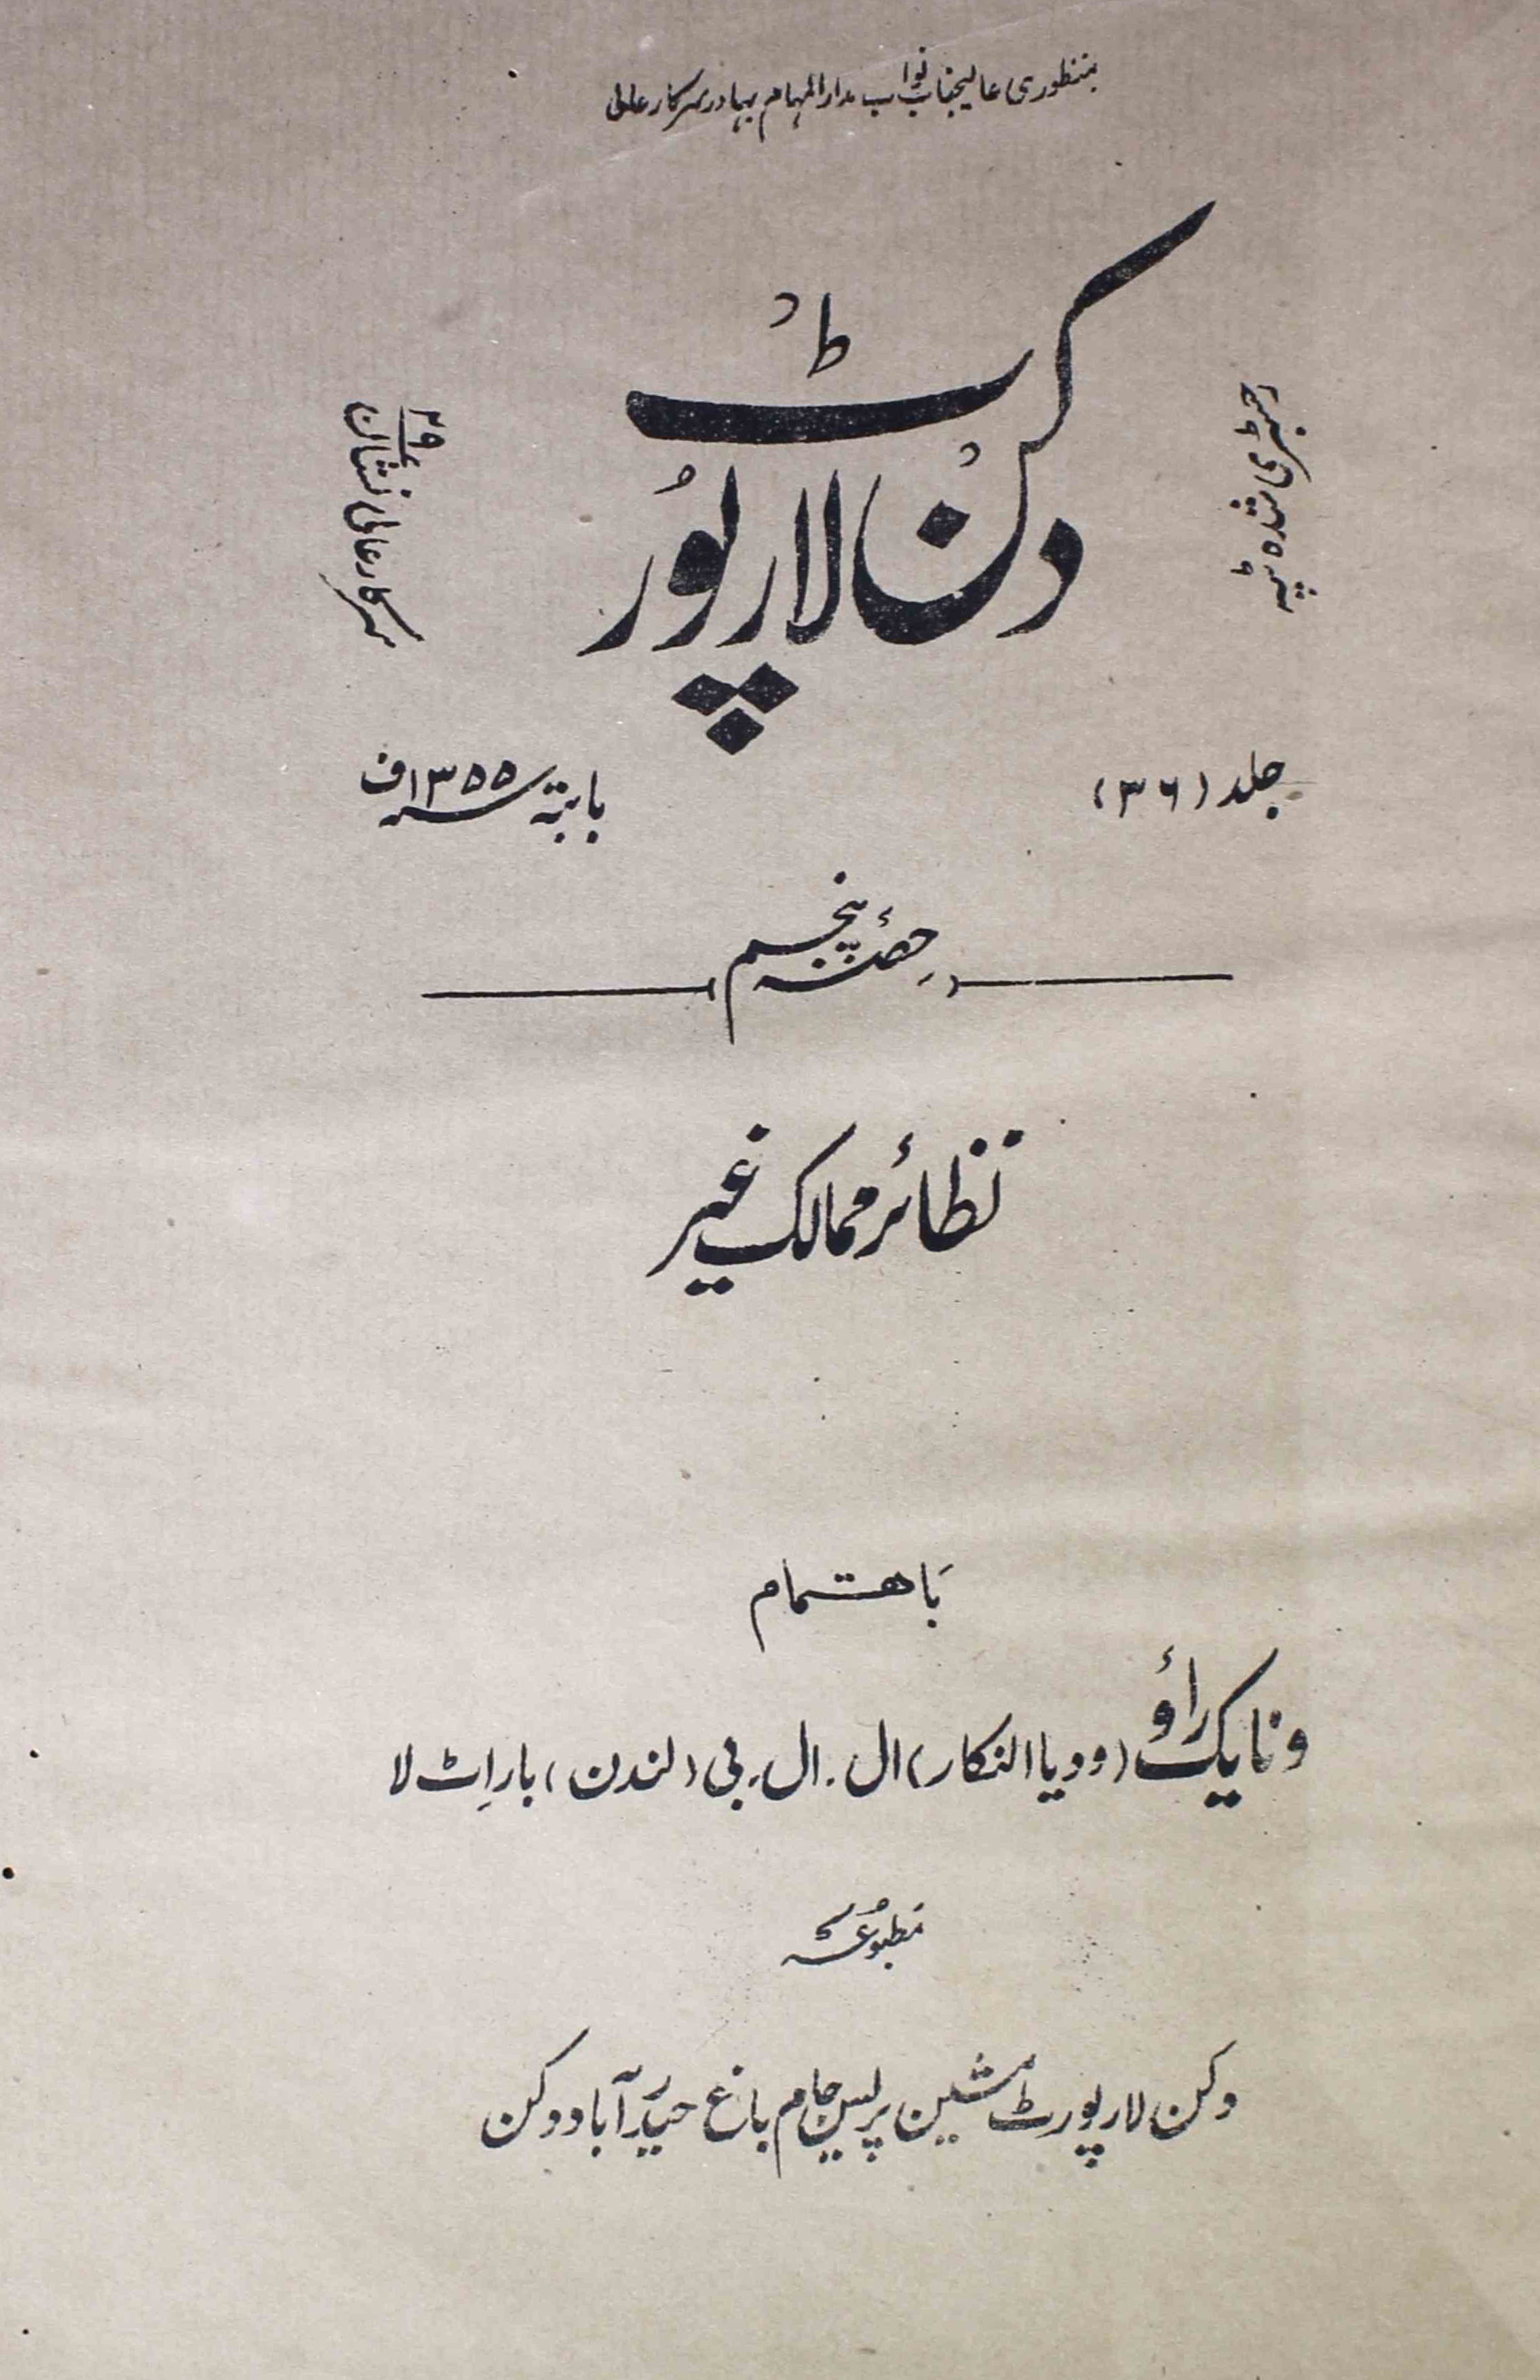 بمنظوری عالیجناب نواب مدارالمہام بہادر سرکار عالی
دکن لا رپورٹ
رجسٹری شدہ ٹپہ
سرکار عالی نشان ۲۹
جلد (۳۶)
بابتہ سنہ ۱۳۵۵ف
حصۂ پنجم
نظائر ممالک غیر
باہتمام
ونایک راؤ (وودیا النکار) ال. ال. بی (لندن) بار اِٹ لا
مطبوعہ
دکن لا رپورٹ مشین پریس جام باغ حیدرآباد دکن